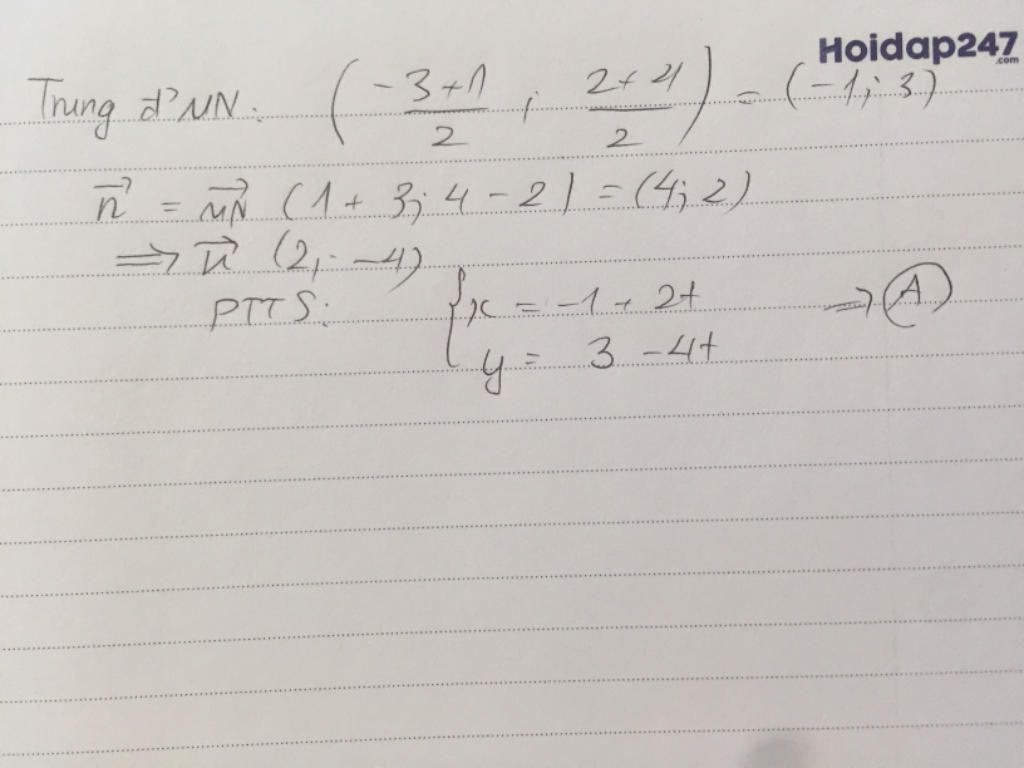 Hoidap247
.com
Trung đ' MN: ( (-3+1)/2 ; (2+4)/2 ) = (-1; 3)
n⃗ = MN⃗ (1 + 3; 4 - 2) = (4; 2)
⇒ u⃗ (2; -4)
PTTS: { x = -1 + 2t ⇒ Ⓐ
y = 3 - 4t